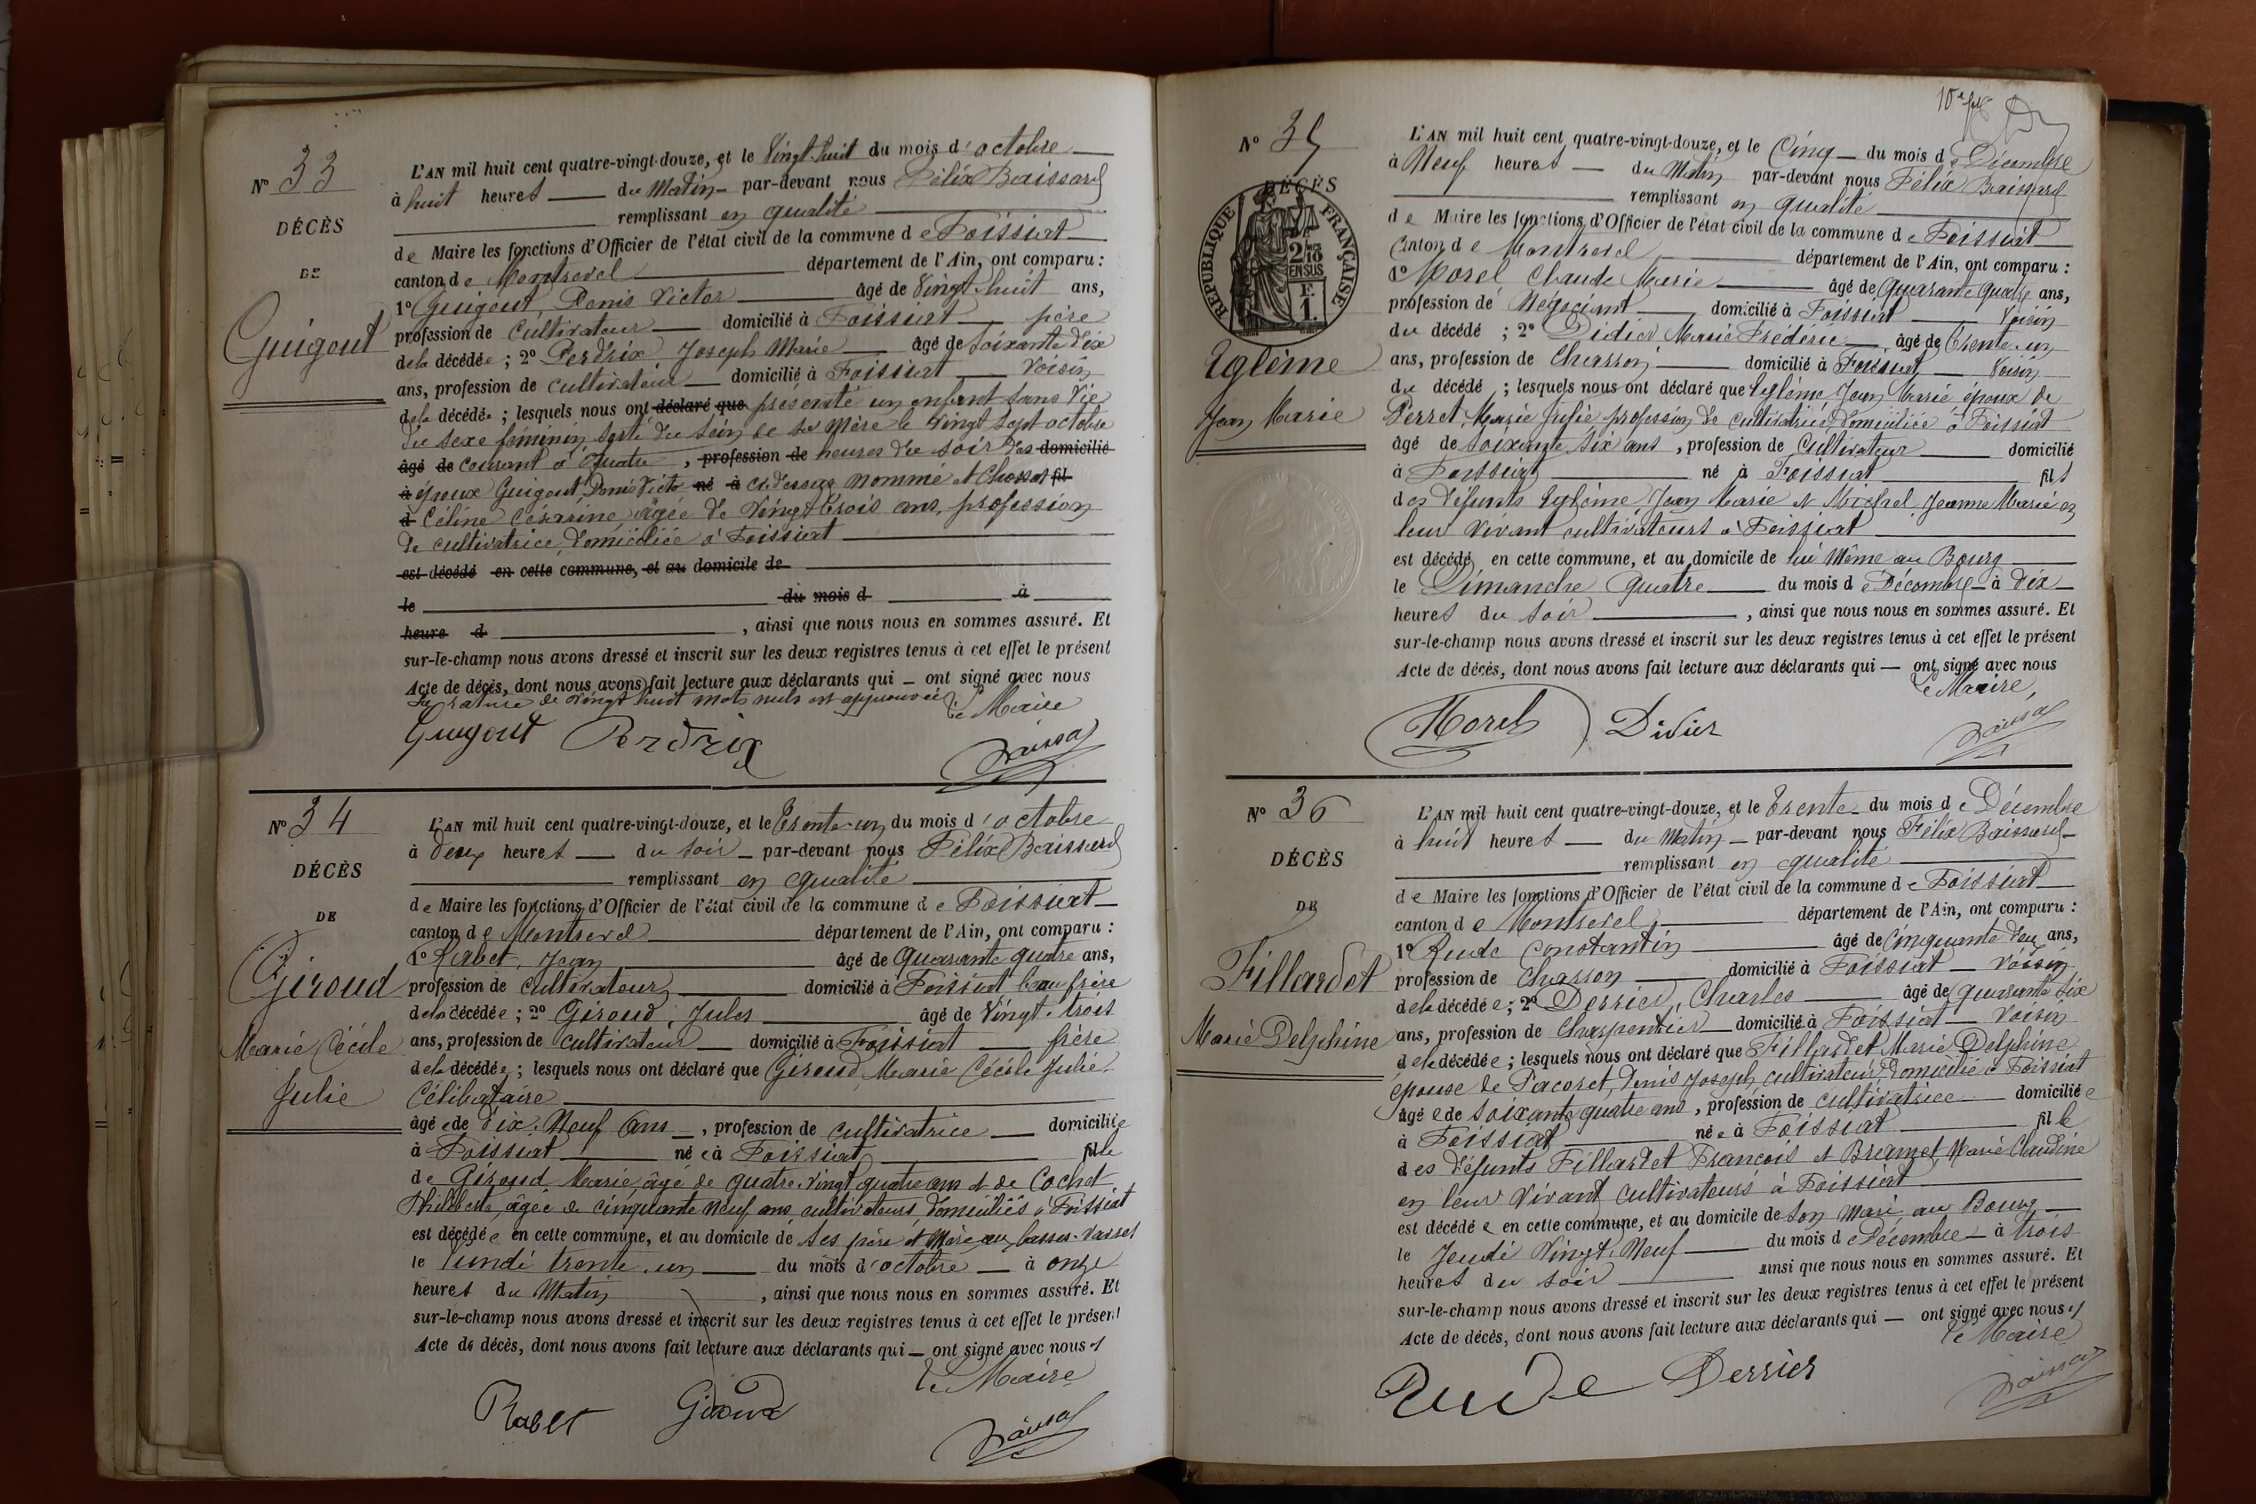 N° 33
DÉCÈS
DE
Guigout
L'AN mil huit cent quatre-vingt-douze, et le Vingt huit du mois d'octobre
à huit heures du Matin par-devant nous Félix Baissard
remplissant en qualité
de Maire les fonctions d'Officier de l'état civil de la commune de Foissiat
canton de Montrevel département de l'Ain, ont comparu :
1° Guigout Denis Victor âgé de Vingt huit ans,
profession de Cultivateur domicilié à Foissiat père
de la décédée ; 2° Perdrix Joseph Marie âgé de soixante dix
ans, profession de cultivateur domicilié à Foissiat Voisin
de la décédée ; lesquels nous ont déclaré que présenté un enfant sans Vie
du sexe féminin sorti du sein de sa Mère le vingt sept octobre
âgé de courant à quatre, profession de heures du soir des domicilié
à époux Guigout Denis Victor né à ci dessus nommé et Chossat fil
d Céline Césarine, âgée de Vingt trois ans, profession
de cultivatrice, domiciliée à Foissiat
est décédé en cette commune, et au domicile de
le du mois d à
heure d , ainsi que nous nous en sommes assuré. Et
sur-le-champ nous avons dressé et inscrit sur les deux registres tenus à cet effet le présent
Acte de décès, dont nous avons fait lecture aux déclarants qui — ont signé avec nous
La rature de vingt huit mots nuls est approuvée Le Maire
Guigout Perdrix Baissard
N° 34
DÉCÈS
DE
Giroud
Marie Cécile
Julie
L'AN mil huit cent quatre-vingt-douze, et le Trente-un du mois d'octobre
à deux heures du soir par-devant nous Félix Baissard
remplissant en qualité
de Maire les fonctions d'Officier de l'état civil de la commune de Foissiat
canton de Montrevel département de l'Ain, ont comparu :
1° Rabet, Jean âgé de Quarante quatre ans,
profession de cultivateur domicilié à Foissiat beau frère
de la décédée ; 2° Giroud, Jules âgé de Vingt-trois
ans, profession de cultivateur domicilié à Foissiat frère
de la décédée ; lesquels nous ont déclaré que Giroud Marie Cécile Julie
Célibataire
âgée de dix-Neuf ans, profession de cultivatrice domiciliée
à Foissiat née à Foissiat fille
de Giroud Marie, âgé de quatre-vingt quatre ans et de Cochet
Philiberte, âgée de cinquante neuf ans, cultivateurs, domiciliés à Foissiat
est décédée en cette commune, et au domicile de ses père et Mère aux basses-Vavres
le lundi trente-un du mois d'octobre à onze
heures du Matin, ainsi que nous nous en sommes assuré. Et
sur-le-champ nous avons dressé et inscrit sur les deux registres tenus à cet effet le présent
Acte de décès, dont nous avons fait lecture aux déclarants qui — ont signé avec nous
Le Maire
Rabet Giroud Baissard
N° 35
DÉCÈS
RÉPUBLIQUE FRANÇAISE
2/10 EN SUS
F. 1.
Uglème
Jean Marie
L'AN mil huit cent quatre-vingt-douze, et le Cinq du mois de Décembre
à Neuf heures du Matin par-devant nous Félix Baissard
remplissant en qualité
de Maire les fonctions d'Officier de l'état civil de la commune de Foissiat
Canton de Montrevel département de l'Ain, ont comparu :
1° Morel Claude Marie âgé de Quarante quatre ans,
profession de Négociant domicilié à Foissiat Voisin
du décédé ; 2° Didier Marie Frédéric âgé de trente-un
ans, profession de Charron domicilié à Foissiat Voisin
du décédé ; lesquels nous ont déclaré que Uglème Jean Marie époux de
Perret, Marie Josèe profession de cultivatrice domiciliée à Foissiat
âgé de soixante six ans, profession de Cultivateur domicilié
à Foissiat né à Foissiat fils
des défunts Uglème, Jean Marie et Michel Jeanne Marie en
leur vivant cultivateurs à Foissiat
est décédé en cette commune, et au domicile de lui Même au Bourg
le Dimanche Quatre du mois de Décembre à dix
heures du soir, ainsi que nous nous en sommes assuré. Et
sur-le-champ nous avons dressé et inscrit sur les deux registres tenus à cet effet le présent
Acte de décès, dont nous avons fait lecture aux déclarants qui — ont signé avec nous
Le Maire,
Morel Didier Baissard
N° 36
DÉCÈS
DE
Fillardet
Marie Delphine
L'AN mil huit cent quatre-vingt-douze, et le Trente du mois de Décembre
à huit heures du Matin par-devant nous Félix Baissard
remplissant en qualité
de Maire les fonctions d'Officier de l'état civil de la commune de Foissiat
canton de Montrevel département de l'Ain, ont comparu :
1° Rude Constantin âgé de Cinquante deux ans,
profession de Charron domicilié à Foissiat Voisin
de la décédée ; 2° Derrier, Charles âgé de quarante six
ans, profession de Charpentier domicilié à Foissiat Voisin
de la décédée ; lesquels nous ont déclaré que Fillardet Marie Delphine
épouse de Pacoret, Denis Joseph cultivateur, domicilié à Foissiat
âgée de soixante quatre ans, profession de cultivatrice domiciliée
à Foissiat née à Foissiat fille
des défunts Fillardet François et Bramet Marie Claudine
en leur vivant cultivateurs à Foissiat
est décédée en cette commune, et au domicile de son Mari au Bourg
le Jeudi Vingt-Neuf du mois de Décembre à trois
heures du soir ainsi que nous nous en sommes assuré. Et
sur-le-champ nous avons dressé et inscrit sur les deux registres tenus à cet effet le présent
Acte de décès, dont nous avons fait lecture aux déclarants qui — ont signé avec nous
Le Maire
Rude Derrier Baissard